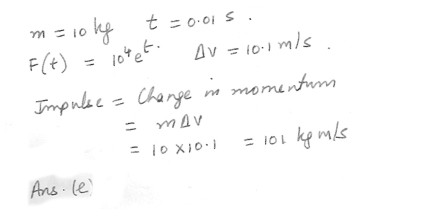 m = 10 kg t = 0.01 s .
F(t) = 10⁴eᵗ. Δv = 10.1 m/s .
Impulse = Change in momentum
= mΔv
= 10 × 10.1 = 101 kg m/s
Ans. (e)